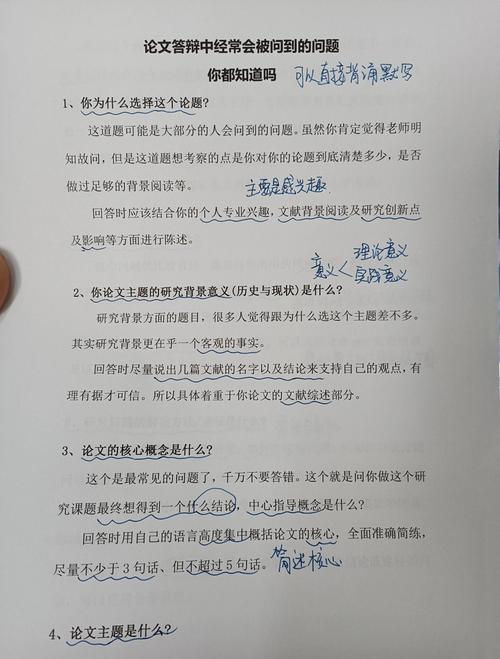 论文答辩中经常会被问到的问题
你都知道吗 可以直接背诵默写
1、你为什么选择这个论题?
这道题可能是大部分的人会问的问题。虽然你肯定觉得老师明
知故问，但是这道题想考察的点是你对你的论题到底清楚多少，是否
做过足够的背景阅读等。 主要是感兴趣
回答时应该结合你的个人专业兴趣，文献背景阅读及研究创新点
及影响等方面进行陈述。
意义< 理论意义
实践意义
2、你论文主题的研究背景意义(历史与现状)是什么?
研究背景方面的题目，很多人觉得跟为什么选这个主题差不多。
其实研究背景更在乎一个客观的事实。
回答时尽量说出几篇文献的名字以及结论来支持自己的观点，有
理有据才可信。所以具体着重于你论文的文献综述部分。
3、论文的核心概念是什么?
这个是最常见的问题了，千万不要答错。这个就是问你做这个研
究课题最终想得到一个什么结论，中心指导概念是什么?
回答时用自己的语言高度集中概括论文的核心，全面准确简练，
尽量不少于 3 句话、但不超过 5 句话。 简述核心
4、论文主题是什么?